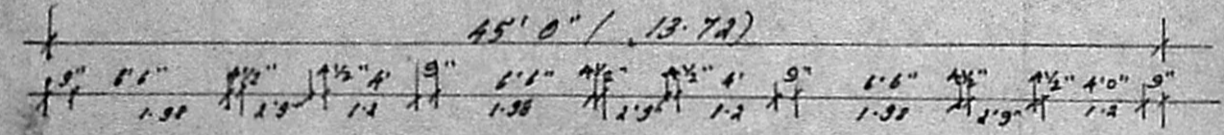 45' 0" ( 13.72)
9" 6'6" 4½" 4½" 4' 9" 6'6" 4½" 4½" 4' 9" 6'6" 4½" 4½" 4'0" 9"
1.98 2'9" 1.2 1.98 2'9" 1.2 1.98 2'9" 1.2